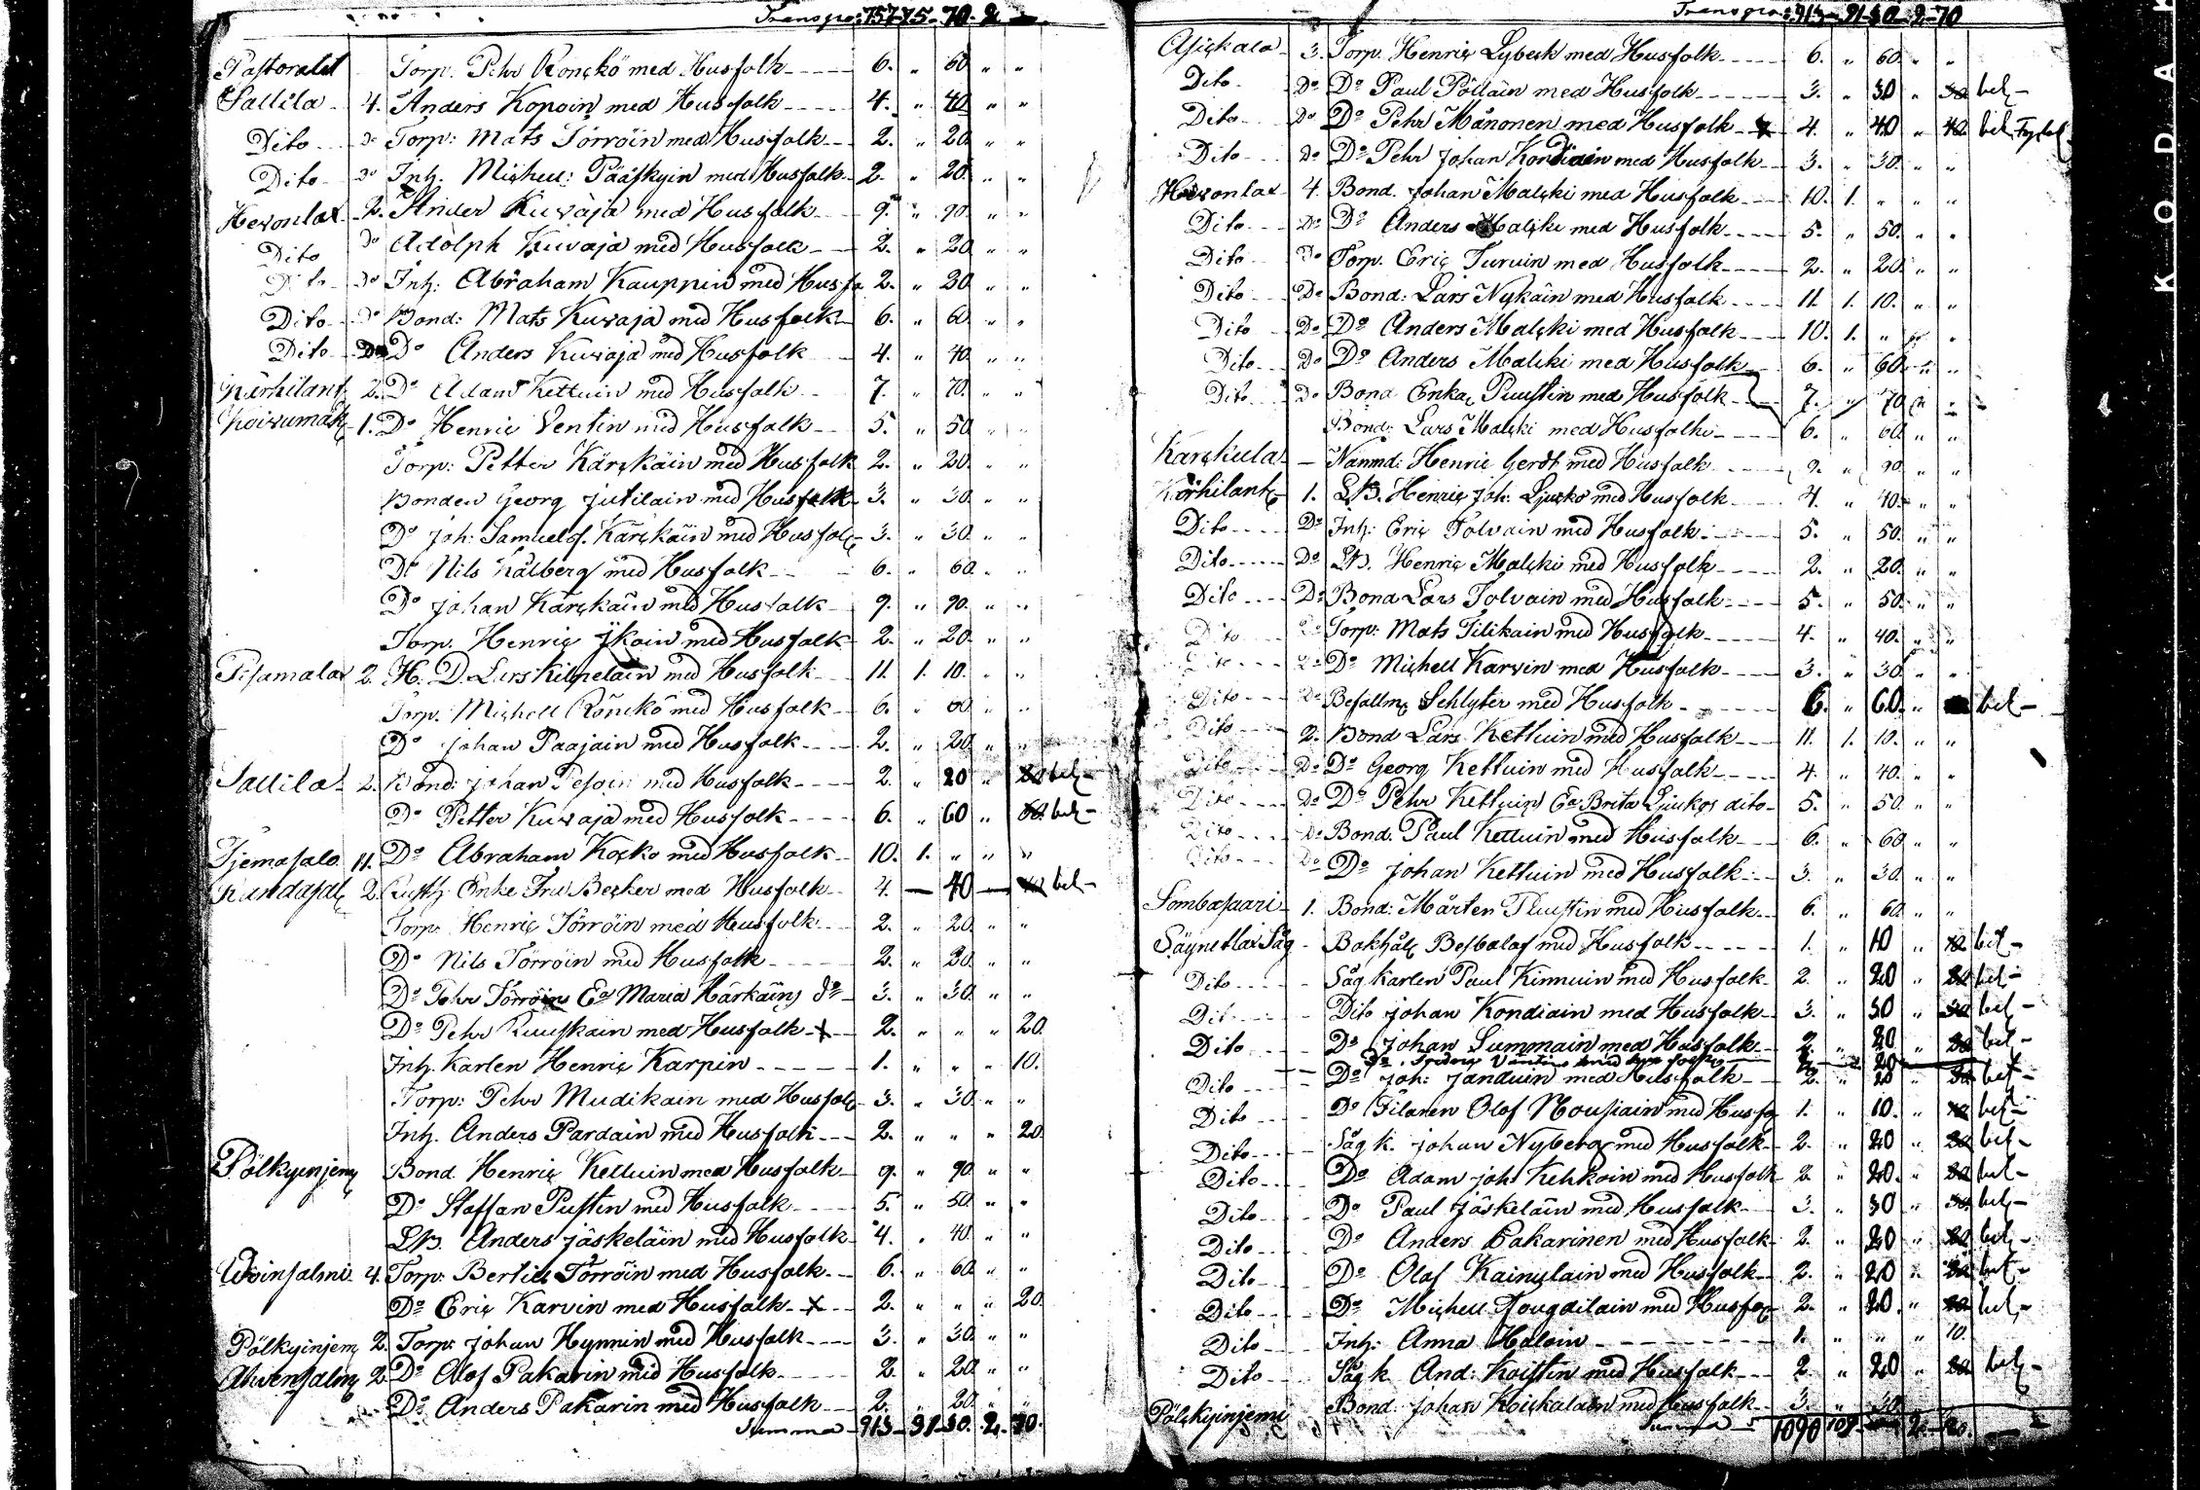 Transpor: 757-75-70-2
Pastoratet Torp. Pehr Ronckö med Husfolk 6. „ 60 „ „
Sallila 4. Anders Kopoin med Husfolk 4. „ 40 „ „
Dito Do Torp: Mats Törröin med Husfolk 2. „ 20 „ „
Dito Do Inh. Michell: Pääskyin med Husfolk 2. „ 20 „ „
Hevonlax 2. Ander Kuvaja med Husfolk 9. „ 90 „ „
Dito Do Adolph Kuvaja med Husfolk 2. „ 20 „ „
Dito Do Inh: Abraham Kauppin med Husfo 2. „ 20 „ „
Dito Do Bond: Mats Kuvaja med Husfolk 6. „ 60 „ „
Dito Do Do Anders Kuvaja med Husfolk 4. „ 40 „ „
Kärhilant 2. Do Adam Kettuin med Husfolk 7. „ 70. „ „
Koivumäk 1. Do Henric Ventin med Husfolk 5. „ 50 „ „
Torp: Petter Kärckäin med Husfolk 2. „ 20 „ „
Bonden Georg Jutilain med Husfolk 3. „ 30 „ „
Do Joh: Samuels. Kärckäin med Husfolk 3. „ 30 „ „
Do Nils Kålberg med Husfolk 6. „ 60 „ „
Do Johan Kärckäin med Husfolk 9. „ 90. „ „
Torp. Henric Ikoin med Husfolk 2. „ 20 „ „
Pisamalax 2. H. D. Lars Kilpeläin med Husfolk 11. 1. 10. „ „
Torp. Michell Rönckö med Husfolk 6. „ 60 „ „
Do Johan Paajain med Husfolk 2. „ 20 „ „
Sallila 2. Bond: Johan Pesoin med Husfolk 2. „ 20 „ 20 bet
Do Petter Kuvaja med Husfolk 6. „ 60 „ 60 bet
Tjemasalo 11. Do Abraham Kocko med Husfolk 10. 1. „ „ „
Randasal 2. Enke Fru Becker med Husfolk 4. — 40 — 40 bet
Torp. Henric Törröin med Husfolk 2. „ 20 „ „
Do Nils Törröin med Husfolk 2. „ 20. „ „
Do Pehr Törröins Ea Maria Härkäin do 3. „ 30. „ „
Do Pehr Ruuskain med Husfolk x 2. „ „ „ 20.
Inh. Karlen Henric Karpin 1. „ „ „ 10.
Torp: Pehr Mudikain med Husfolk 3. „ 30 „ „
Inh. Anders Pardain med Husfolk 2. „ „ „ 20
Pölkyinjem Bond. Henric Kettuin med Husfolk 9. „ 90. „ „
Do Staffan Pustin med Husfolk 5. „ 50 „ „
LB. Anders Jäskeläin med Husfolk 4. „ 40. „ „
Woinsalmi 4. Torp. Bertil Törröin med Husfolk 6. „ 60. „ „
Do Eric Karvin med Husfolk x 2. „ „ „ 20
Pölkyinjem 2. Torp. Johan Hynnin med Husfolk 3. „ 30. „ „
Ahvensalm 2. Do Olof Pakarin med Husfolk 2. „ 20. „ „
Do Anders Pakarin med Husfolk 2. „ 20. „ „
Summa 913 91 30. 2. 70.
Transpor: 913 91 30 2 70
Asickala 3. Torp. Henric Lybeck med Husfolk 6. „ 60. „ „
Dito Do Do Paul Pöllain med Husfolk 3. „ 30 „ 30 bet
Dito Do Do Pehr Mänonen med Husfolk x 4. „ 40 „ 40 bet
Dito Do Do Pehr Johan Kondiain med Husfolk 3. „ 30. „ „
Hevonlax 4. Bond. Johan Malski med Husfolk 10. 1. „ „ „
Dito Do Do Anders Malski med Husfolk 5. „ 50. „ „
Dito Do Torp. Eric Turuin med Husfolk 2. „ 20. „ „
Dito Do Bond: Lars Nykäin med Husfolk 11. 1. 10. „ „
Dito Do Do Anders Malski med Husfolk 10. 1. „ „ „
Dito Do Do Anders Malski med Husfolk 6. „ 60 „ „
Dito Do Bond Enka Puustin med Husfolk 7. „ 70 „ „
Bond: Lars Malski med Husfolk 6. „ 60 „ „
Karckula Nämnd: Henric Gerdt med Husfolk 9. „ 90 „ „
Kärhilant 1. LB. Henric Joh: Ljucko med Husfolk 4. „ 40. „ „
Dito Do Inh: Eric Tolvain med Husfolk 5. „ 50. „ „
Dito Do LB. Henric Malski med Husfolk 2. „ 20. „ „
Dito Do Bond Lars Tolvain med Husfolk 5. „ 50. „ „
Dito Do Torp: Mats Tilikain med Husfolk 4. „ 40. „ „
Dito Do Do Michell Karvin med Husfolk 3. „ 30. „ „
Dito Do Befallnm Schlyter med Husfolk 6. „ 60. „ bet
Dito 2. Bond Lars Kettuin med Husfolk 11. 1. 10. „ „
Dito Do Do Georg Kettuin med Husfolk 4. „ 40. „ „
Dito Do Do Pehr Kettuin Ea Brita Ljuckos dito 5. „ 50. „ „
Dito Do Bond. Paul Kettuin med Husfolk 6. „ 60 „ „
Dito Do Do Johan Kettuin med Husfolk 3. „ 30. „ „
Sombasaari 1. Bond: Mårten Puustin med Husfolk 6. „ 60. „ „
Säynetlax Såg Bokhåll med Husfolk 1. „ 10 „ 10 bet
Dito Såg karlen Paul Kinnuin med Husfolk 2. „ 20 „ 20 bet
Dito Dito Johan Kondiain med Husfolk 3. „ 30 „ 30 bet
Dito Do Johan Summain med Husfolk 2. „ 20 „ 20 bet
Dito Do Joh: Janduin med Husfolk 2. „ 20 „ 20 bet
Dito Do Filaren Olof Nousiain med Husfo 1. „ 10. „ 10 bet
Dito Såg k. Johan Nyberg med Husfolk 2. „ 20 „ 20 bet
Dito Do Adam Joh Kehkoin med Husfolk 2. „ 20. „ 20 bet
Dito Do Paul Jäskeläin med Husfolk 3. „ 30 „ 30 bet
Dito Do Anders Pakarinen med Husfolk 2. „ 20 „ 20 bet
Dito Do Olof Kainulain med Husfolk 2. „ 20 „ 20 bet
Dito Do Michell Rougdilain med Husfo 2. „ 20. „ 20 bet
Dito Inh: Anna Haloin 1. „ „ „ 10.
Dito Såg k. And: Koistin med Husfolk 2. „ 20 „ 20 bet
Pölckyinjemi Bond. Johan Kickalain med Husfolk 3. „ 30
Summa 1090 109
KODAK